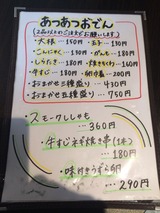 あつあつおでん
(2品以上のご注文でお願いします)
・大根…150円・玉子…130円
・こんにゃく…150円・がんも…180円
・しらたき…150円・焼きちくわ…160円
・牛すじ…180円・餅巾着…200円
・おまかせ三種盛り…430円
・おまかせ五種盛り…750円
・スモークししゃも
…360円
・牛すじネギ焼き串(1本)
…180円
・味付きうずら卵
…290円